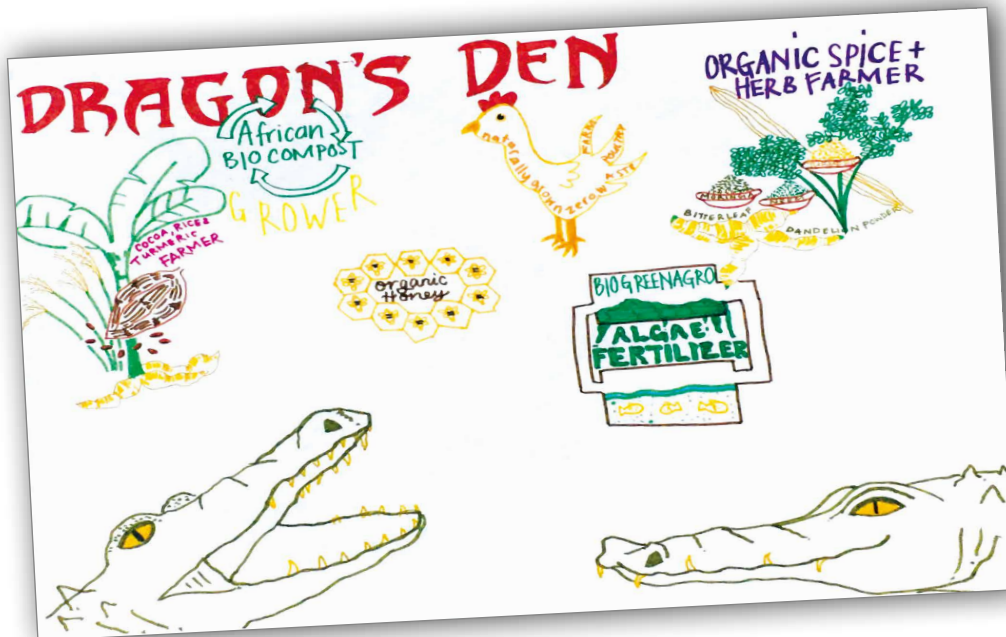 DRAGON'S DEN
African
BIO COMPOST
GROWER
COCOA, RICE &
TURMERIC
FARMER
organic
Honey
naturally grown zero WASTE
POULTRY
ORGANIC SPICE +
HERB FARMER
MORINGA
BITTERLEAF
DANDELION POWDER
BIOGREENAGRO
ALGAE
FERTILIZER